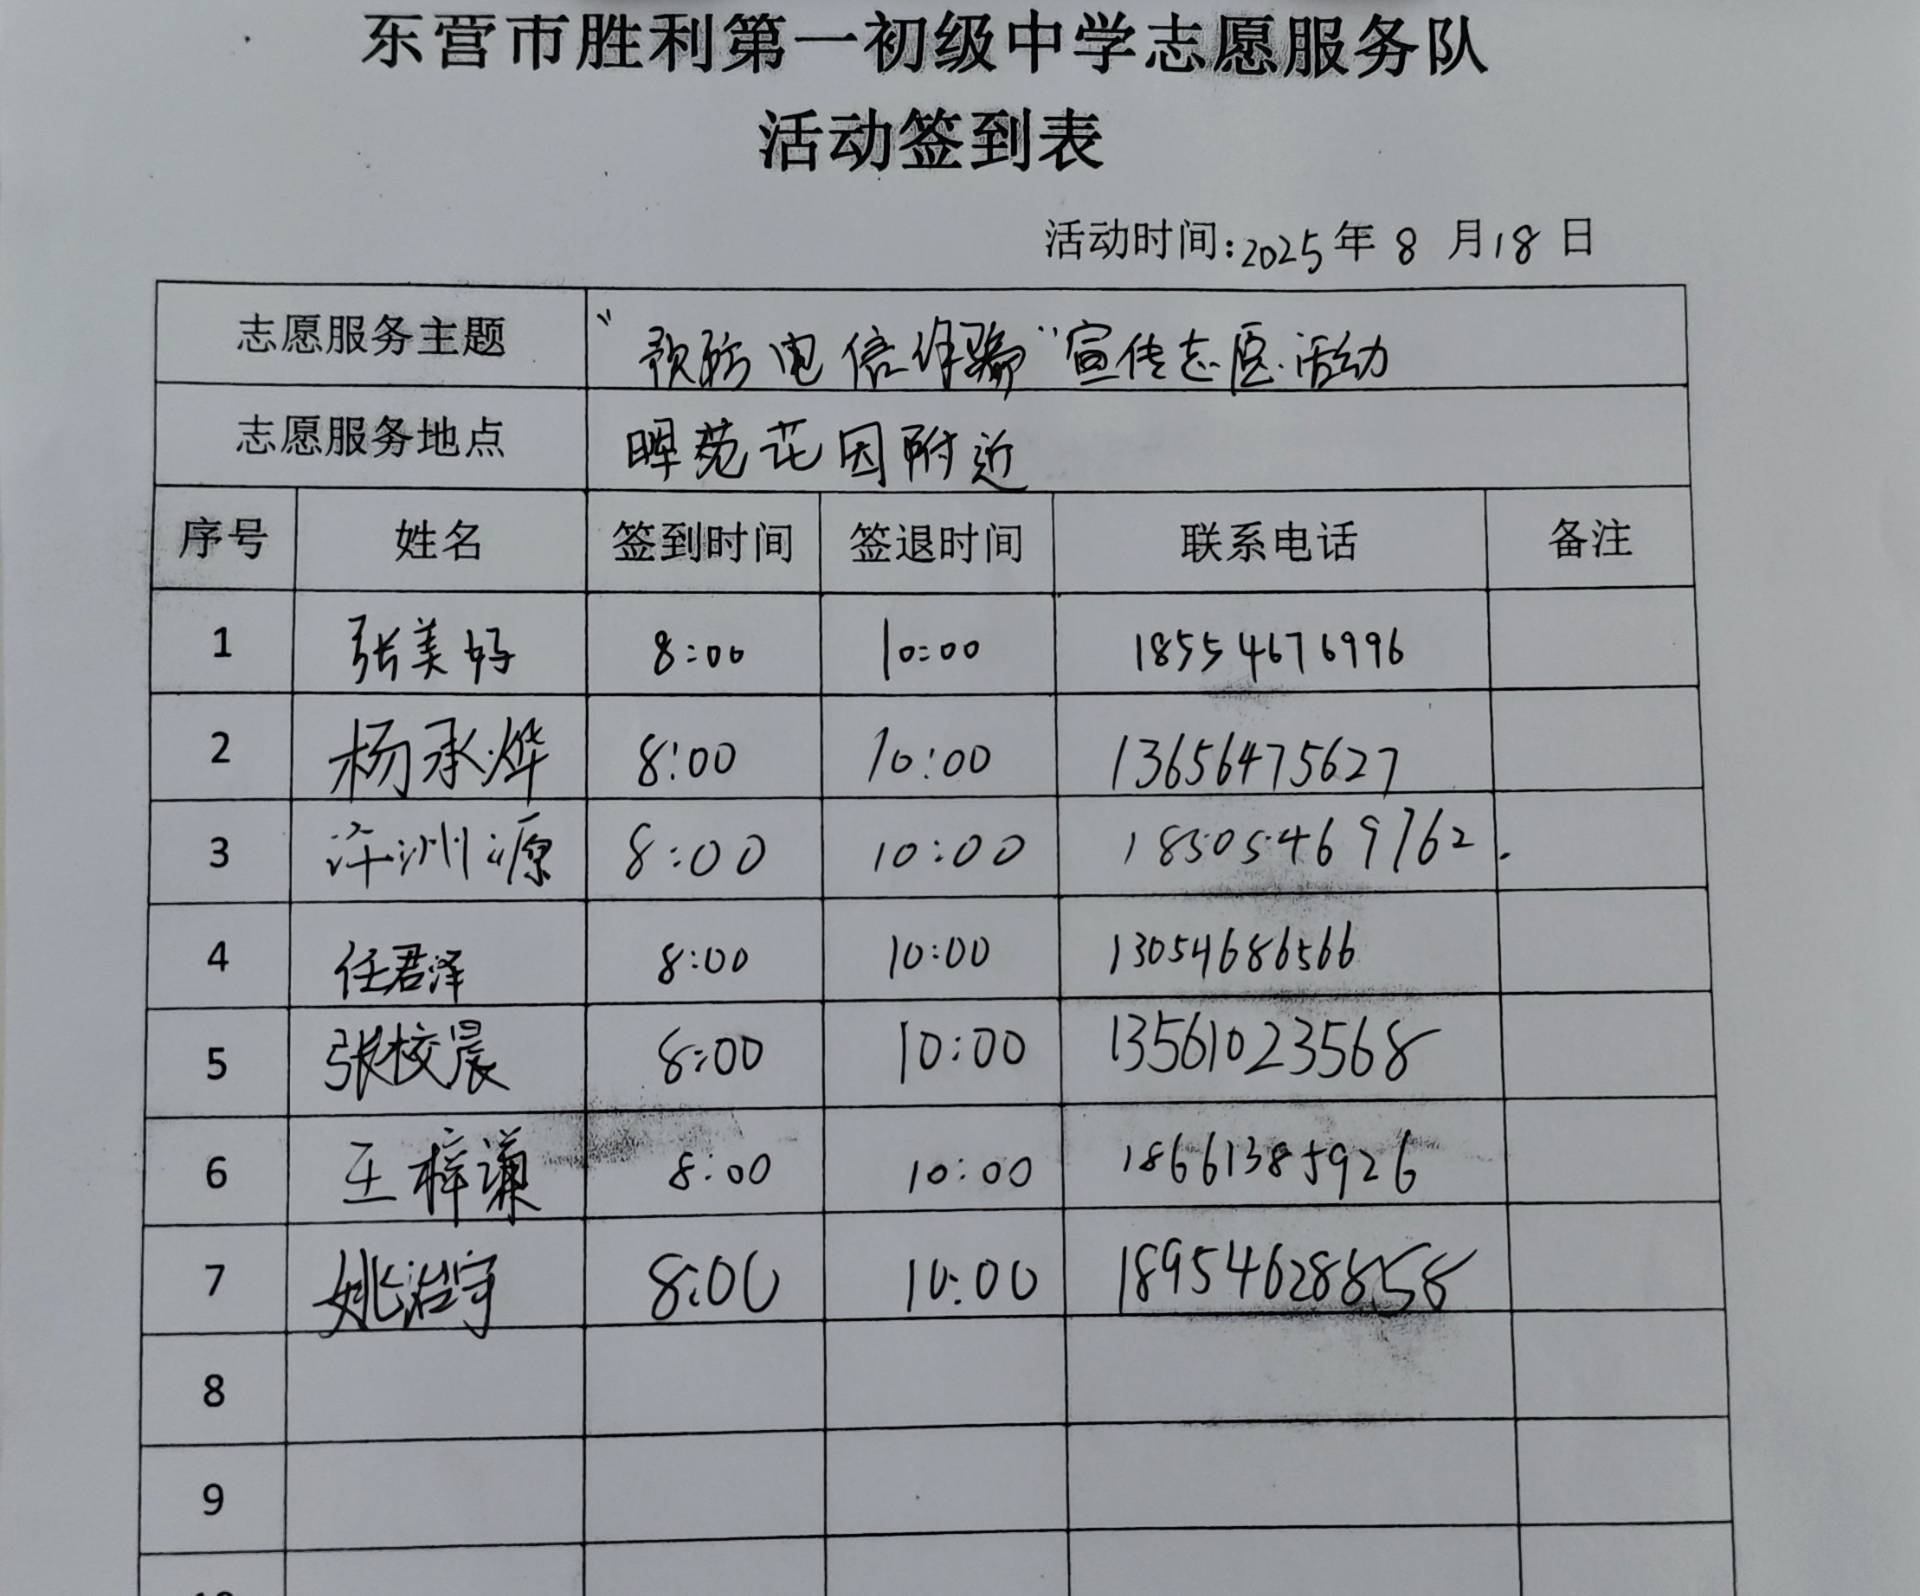 东营市胜利第一初级中学志愿服务队
活动签到表
活动时间:2025年 8 月18 日
志愿服务主题 “预防电信诈骗”宣传志愿活动
志愿服务地点 晖苑花园附近
序号 姓名 签到时间 签退时间 联系电话 备注
1 张美好 8:00 10:00 18554676996
2 杨承烨 8:00 10:00 13656475627
3 许洲源 8:00 10:00 18505469762
4 任君泽 8:00 10:00 13054686566
5 张校晨 8:00 10:00 13561023568
6 王梓谦 8:00 10:00 18661385926
7 姚治宇 8:00 10:00 18954628858
8
9